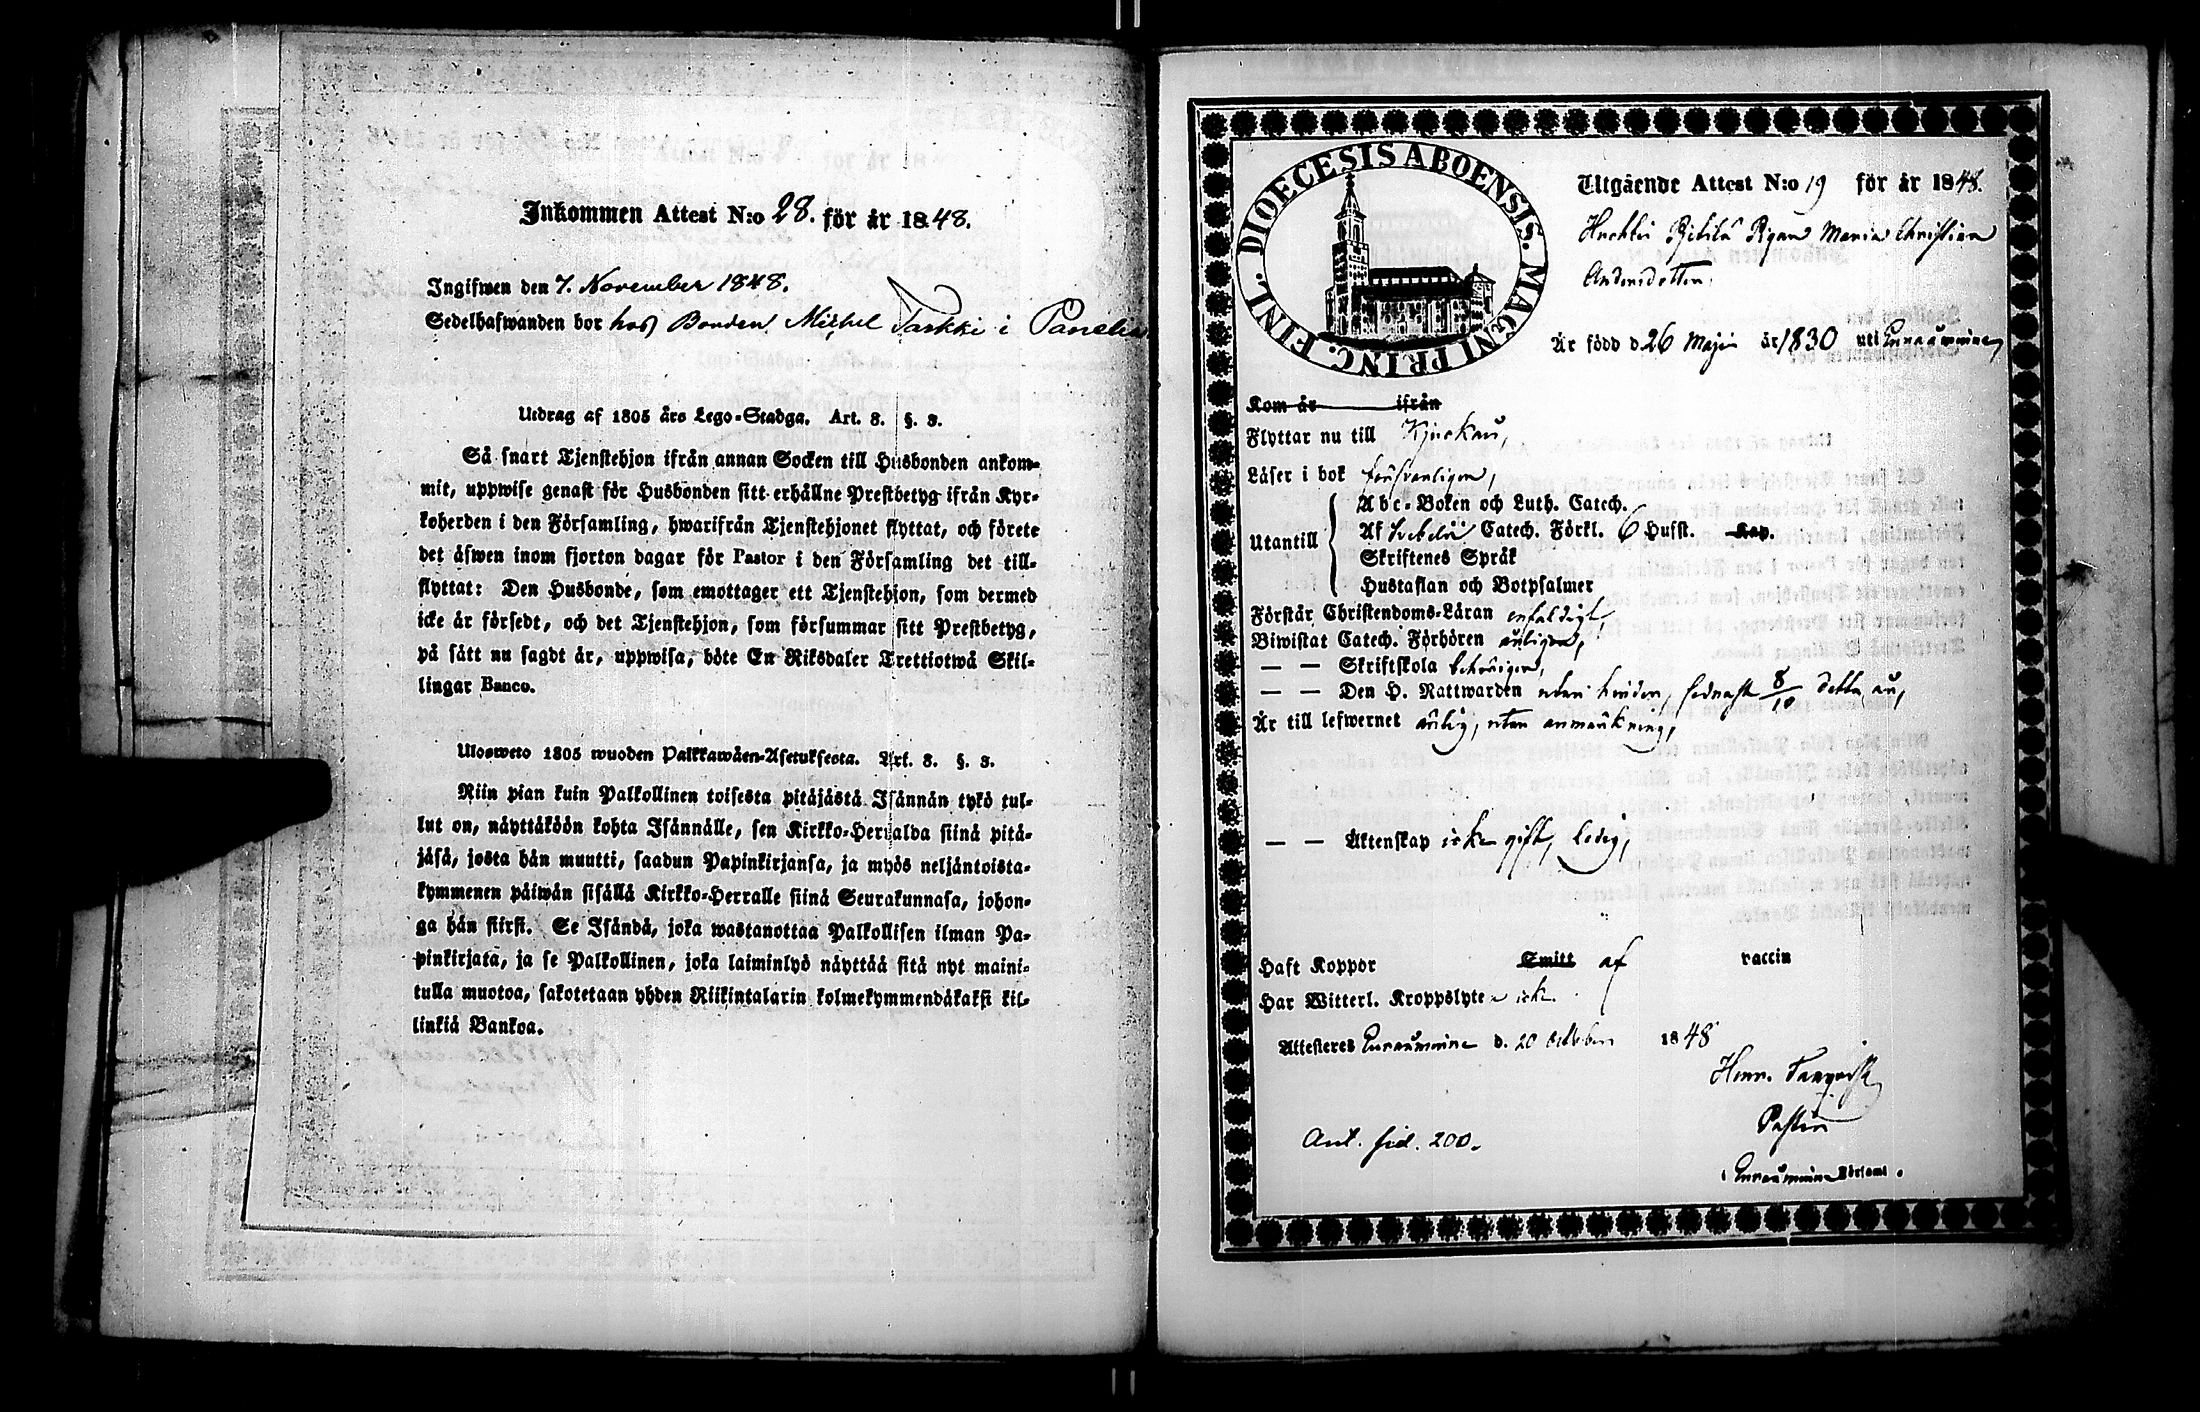 Inkommen Attest N:o 28. för år 1848.
Ingifwen den 7. November 1848.
Sedelhafwanden bor hos Bonden Michel Tarkki i Panelia
Utdrag af 1805 års Lego-Stadga. Art. 3. §. 3.
Så snart Tjenstehjon ifrån annan Socken till Husbonden ankom-
mit, uppwise genast för Husbonden sitt erhållne Prestbetyg ifrån Kyr-
koherden i den Församling, hwarifrån Tjenstehjonet flyttat, och förete
det äfwen inom fjorton dagar för Pastor i den Församling det till-
flyttat: Den Husbonde, som emottager ett Tjenstehjon, som dermed
icke är försedt, och det Tjenstehjon, som försummar sitt Prestbetyg,
på sätt nu sagdt är, uppwisa, böte En Riksdaler Trettiotwå Skil-
lingar Banco.
Ulosweto 1805 wuoden Palkkawäen-Asetuksesta. Art. 3. §. 3.
Niin pian kuin Palkollinen toisesta pitäjästä Isännän tykö tul-
lut on, näyttäköön kohta Isännälle, sen Kirkko-Herralda siinä pitä-
jäsä, josta hän muutti, saadun Papinkirjansa, ja myös neljäntoista-
kymmenen päiwän sisällä Kirkko-Herralle siinä Seurakunnasa, johon-
ga hän siirst. Se Isändä, joka wastanottaa Palkollisen ilman Pa-
pinkirjata, ja se Palkollinen, joka laiminlyö näyttää sitä nyt maini-
tulla muotoa, sakotetaan yhden Riikintalarin kolmekymmendäkaksi kil-
linkiä Bankoa.
DIOECESIS ABOENSIS. MAGNI PRINC. FINL.
Utgående Attest N:o 19 för år 1848.
Pigan Maria Christina
Andersdotter,
Är född d 26 Maji år 1830 uti Euraåminne,
Kom år ifrån
Flyttar nu till Kjukais,
Läser i bok försvarligen,
Utantill
Abc-Boken och Luth. Catech.
Af Svebelii Catech. Förkl. 6 Hufst. Kap.
Skriftenes Språk
Hustaflan och Botpsalmer
Förstår Christendoms-Läran enfaldigt,
Biwistat Catech. Förhören årligen,
— — Skriftskola behörigen,
— — Den H. Nattwarden utan hinder, sednast 8/10 detta år,
Är till lefwernet ärlig, utan anmärkning,
— — Äktenskap icke gift, ledig,
Haft Koppor Smitt af vaccin
Har Witterl. Kroppslyte icke.
Attesteres Euraåminne d. 20 October 1848
Henr. Tanqvist
Pastor
i Euraåminne Församl.
Ant. sid. 200.